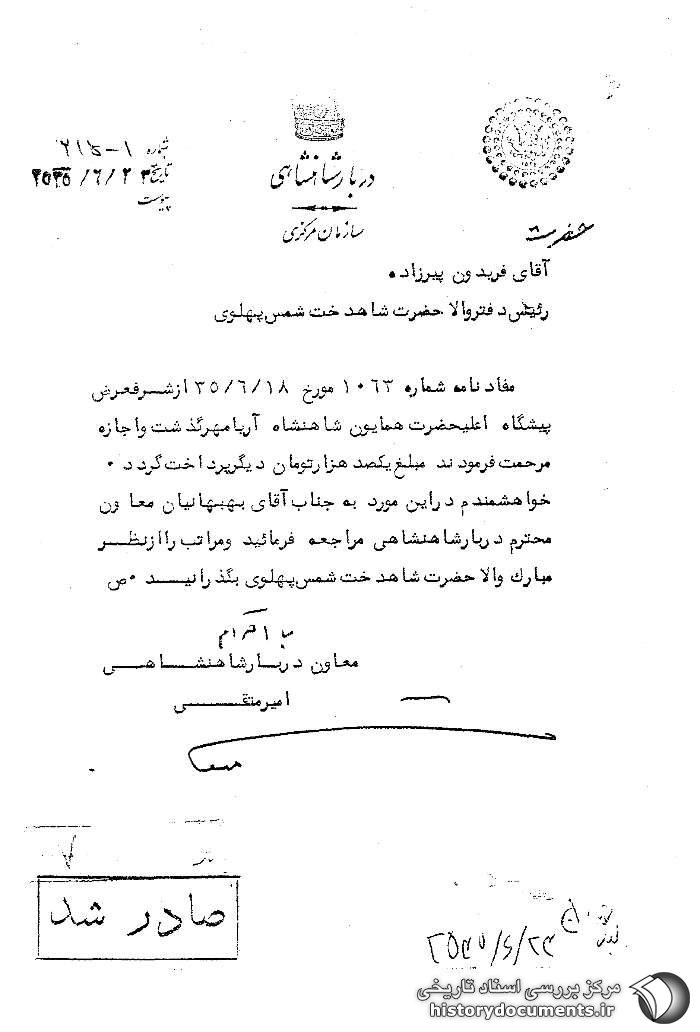 دربار شاهنشاهی
سازمان مرکزی
شماره ۱-۶۱۵
تاریخ ۲۵۳۵/۶/۲۳
پیوست
آقای فریدون پیرزاده
رئیس دفتر والاحضرت شاهدخت شمس پهلوی
مفاد نامه شماره ۱۰۶۳ مورخ ۳۵/۶/۱۸ از شرفعرض
پیشگاه اعلیحضرت همایون شاهنشاه آریامهر گذشت و اجازه
مرحمت فرمودند مبلغ یکصد هزار تومان دیگر پرداخت گردد ۰
خواهشمندم در این مورد به جناب آقای بهبهانیان معاون
محترم دربار شاهنشاهی مراجعه فرمائید و مراتب را از نظر
مبارك والاحضرت شاهدخت شمس پهلوی بگذرانید ۰ص
با احترام
معاون دربار شاهنشاهی
امیر متقی
صادر شد
۲۵۳۵/۶/۲۳
مرکز بررسی اسناد تاریخی
historydocuments.ir